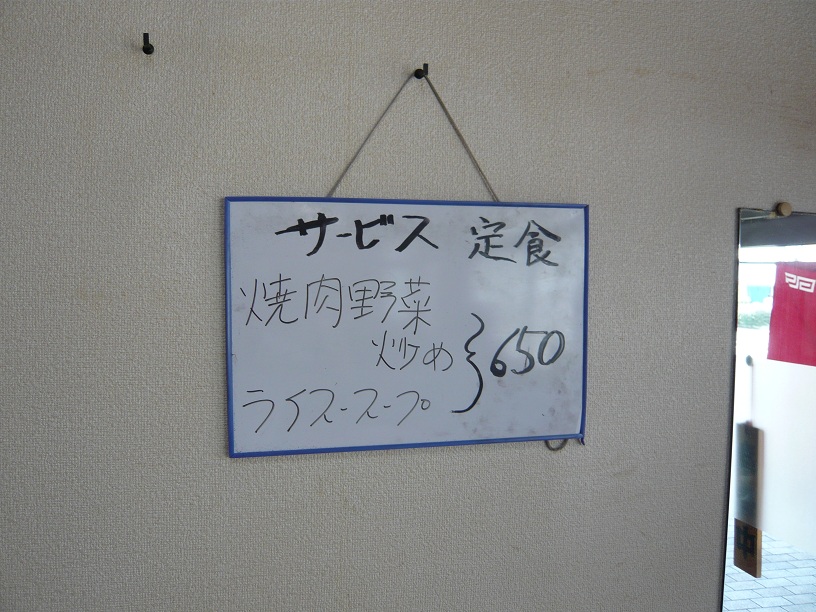 サービス 定食
焼肉野菜
炒め
ライス・スープ
650
中